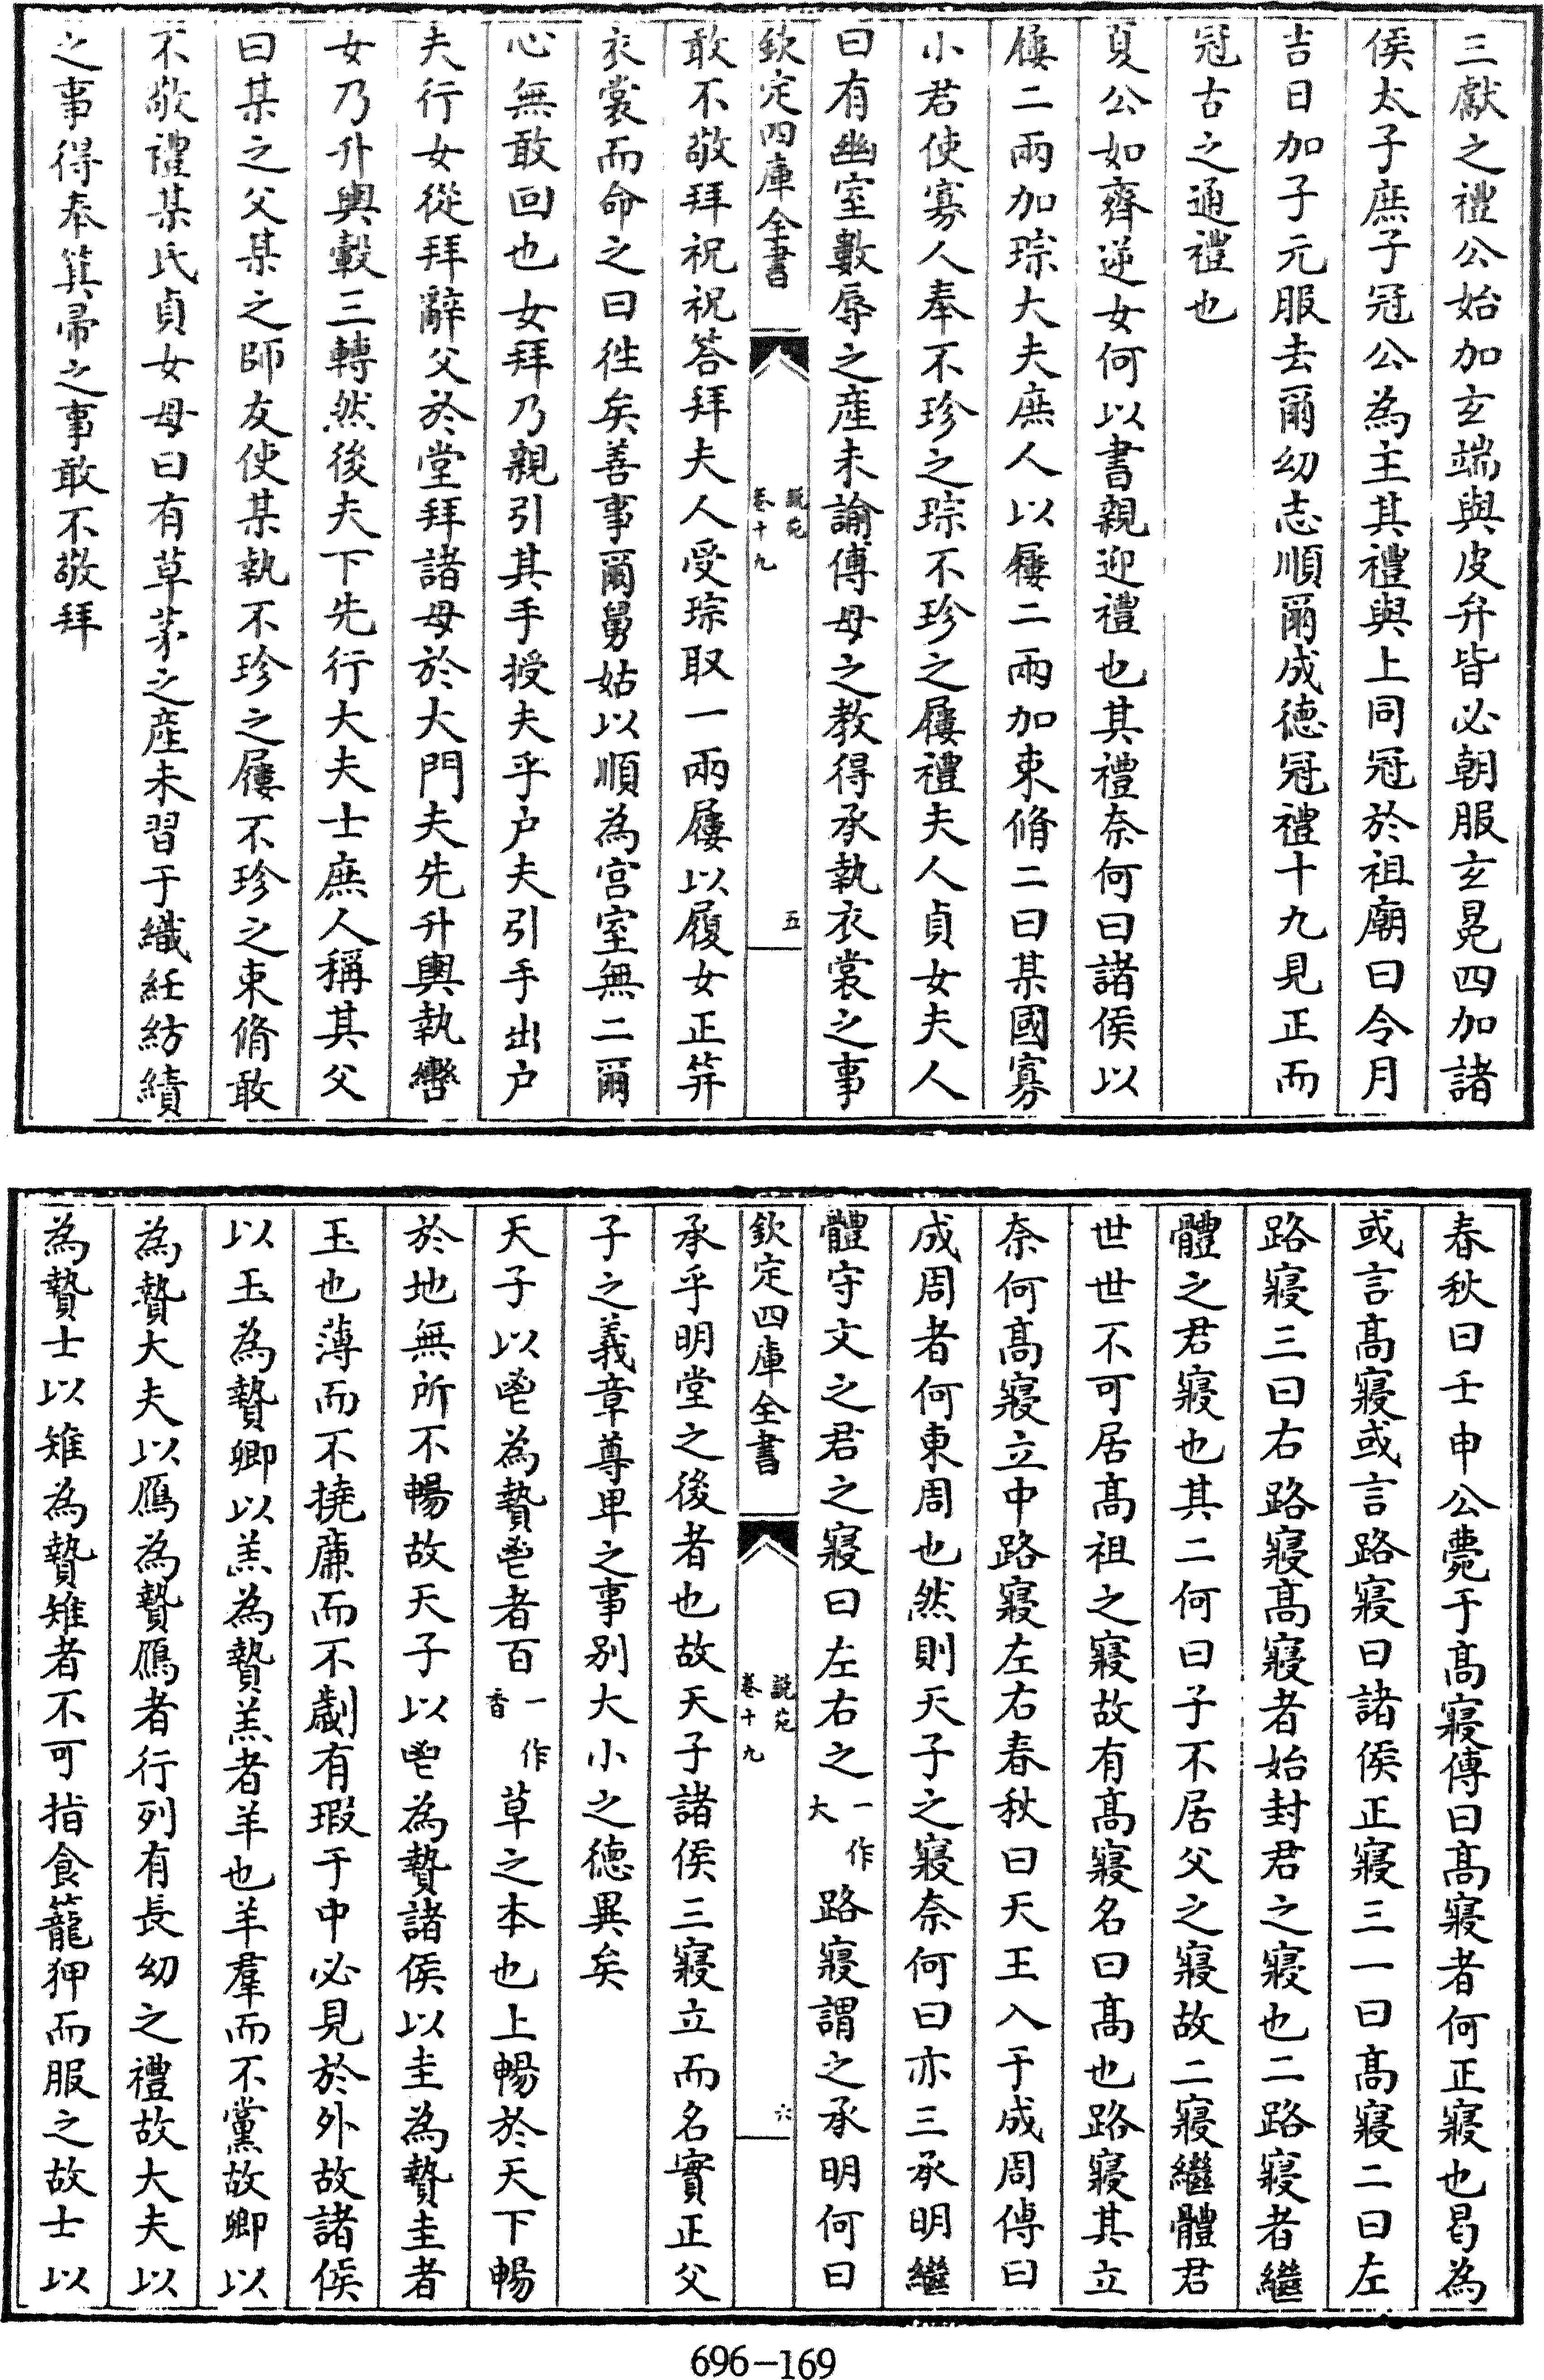 三獻之禮公始加玄端與皮弁皆必朝服玄冕四加諸
侯太子庶子冠公為主其禮與上同冠於祖廟曰令月
吉日加子元服去爾幼志順爾成德冠禮十九見正而
冠古之通禮也
夏公如齊逆女何以書親迎禮也其禮奈何曰諸侯以
屨二兩加琮大夫庶人以屨二兩加束脩二曰某國寡
小君使寡人奉不珍之琮不珍之屨禮夫人貞女夫人
曰有幽室數辱之產未諭傅母之教得承執衣裳之事
欽定四庫全書
說苑
卷十九
五
敢不敬拜祝祝答拜夫人受琮取一兩屨以履女正笄
衣裳而命之曰徃矣善事爾舅姑以順為宫室無二爾
心無敢回也女拜乃親引其手授夫乎户夫引手出户
夫行女從拜辭父於堂拜諸母於大門夫先升輿執轡
女乃升輿轂三轉然後夫下先行大夫士庶人稱其父
曰某之父某之師友使某執不珍之屨不珍之束脩敢
不敬禮某氏貞女母曰有草茅之產未習于織紝紡績
之事得奉箕帚之事敢不敬拜
春秋曰壬申公薨于髙寢傳曰髙寢者何正寢也曷為
或言髙寢或言路寢曰諸侯正寢三一曰髙寢二曰左
路寢三曰右路寢髙寢者始封君之寢也二路寢者繼
體之君寢也其二何曰子不居父之寢故二寢繼體君
世世不可居髙祖之寢故有髙寢名曰髙也路寢其立
奈何髙寢立中路寢左右春秋曰天王入于成周傳曰
成周者何東周也然則天子之寢奈何曰亦三承明繼
體守文之君之寢曰左右之一作大路寢謂之承明何曰
欽定四庫全書
說苑
卷十九
六
承乎明堂之後者也故天子諸侯三寢立而名實正父
子之義章尊卑之事别大小之德異矣
天子以鬯為贄鬯者百一作香草之本也上暢於天下暢
於地無所不暢故天子以鬯為贄諸侯以圭為贄圭者
玉也薄而不撓廉而不劌有瑕于中必見於外故諸侯
以玉為贄卿以羔為贄羔者羊也羊羣而不黨故卿以
為贄大夫以鴈為贄鴈者行列有長幼之禮故大夫以
為贄士以雉為贄雉者不可指食籠狎而服之故士以
696-169